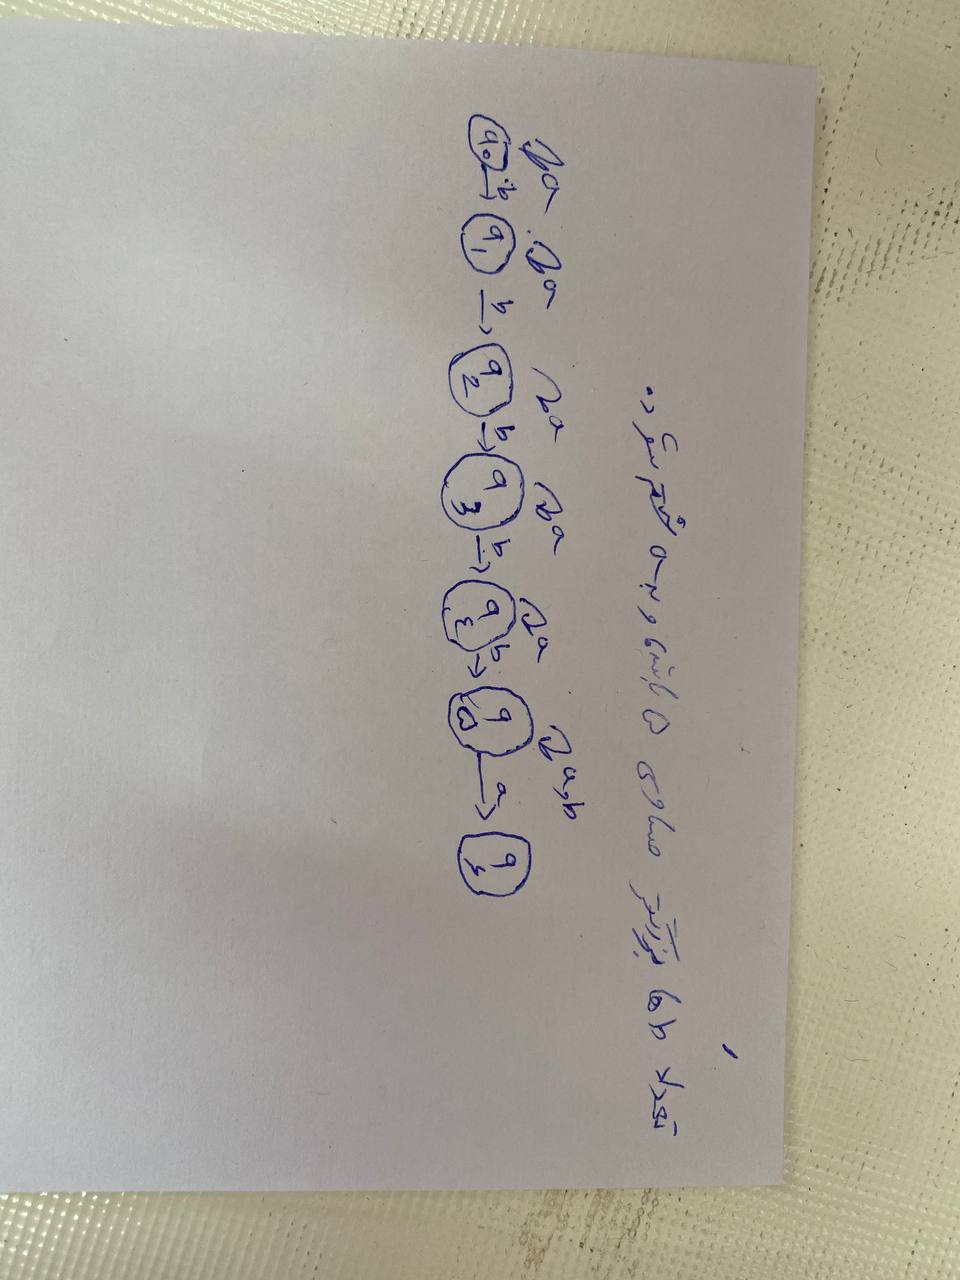 تعداد bها بزرگتر مساوی ۵ باشد و به a ختم شود.
a a a a a a,b
q₀ b→ q₁ b→ q₂ b→ q₃ b→ q₄ b→ q₅ a→ q₆